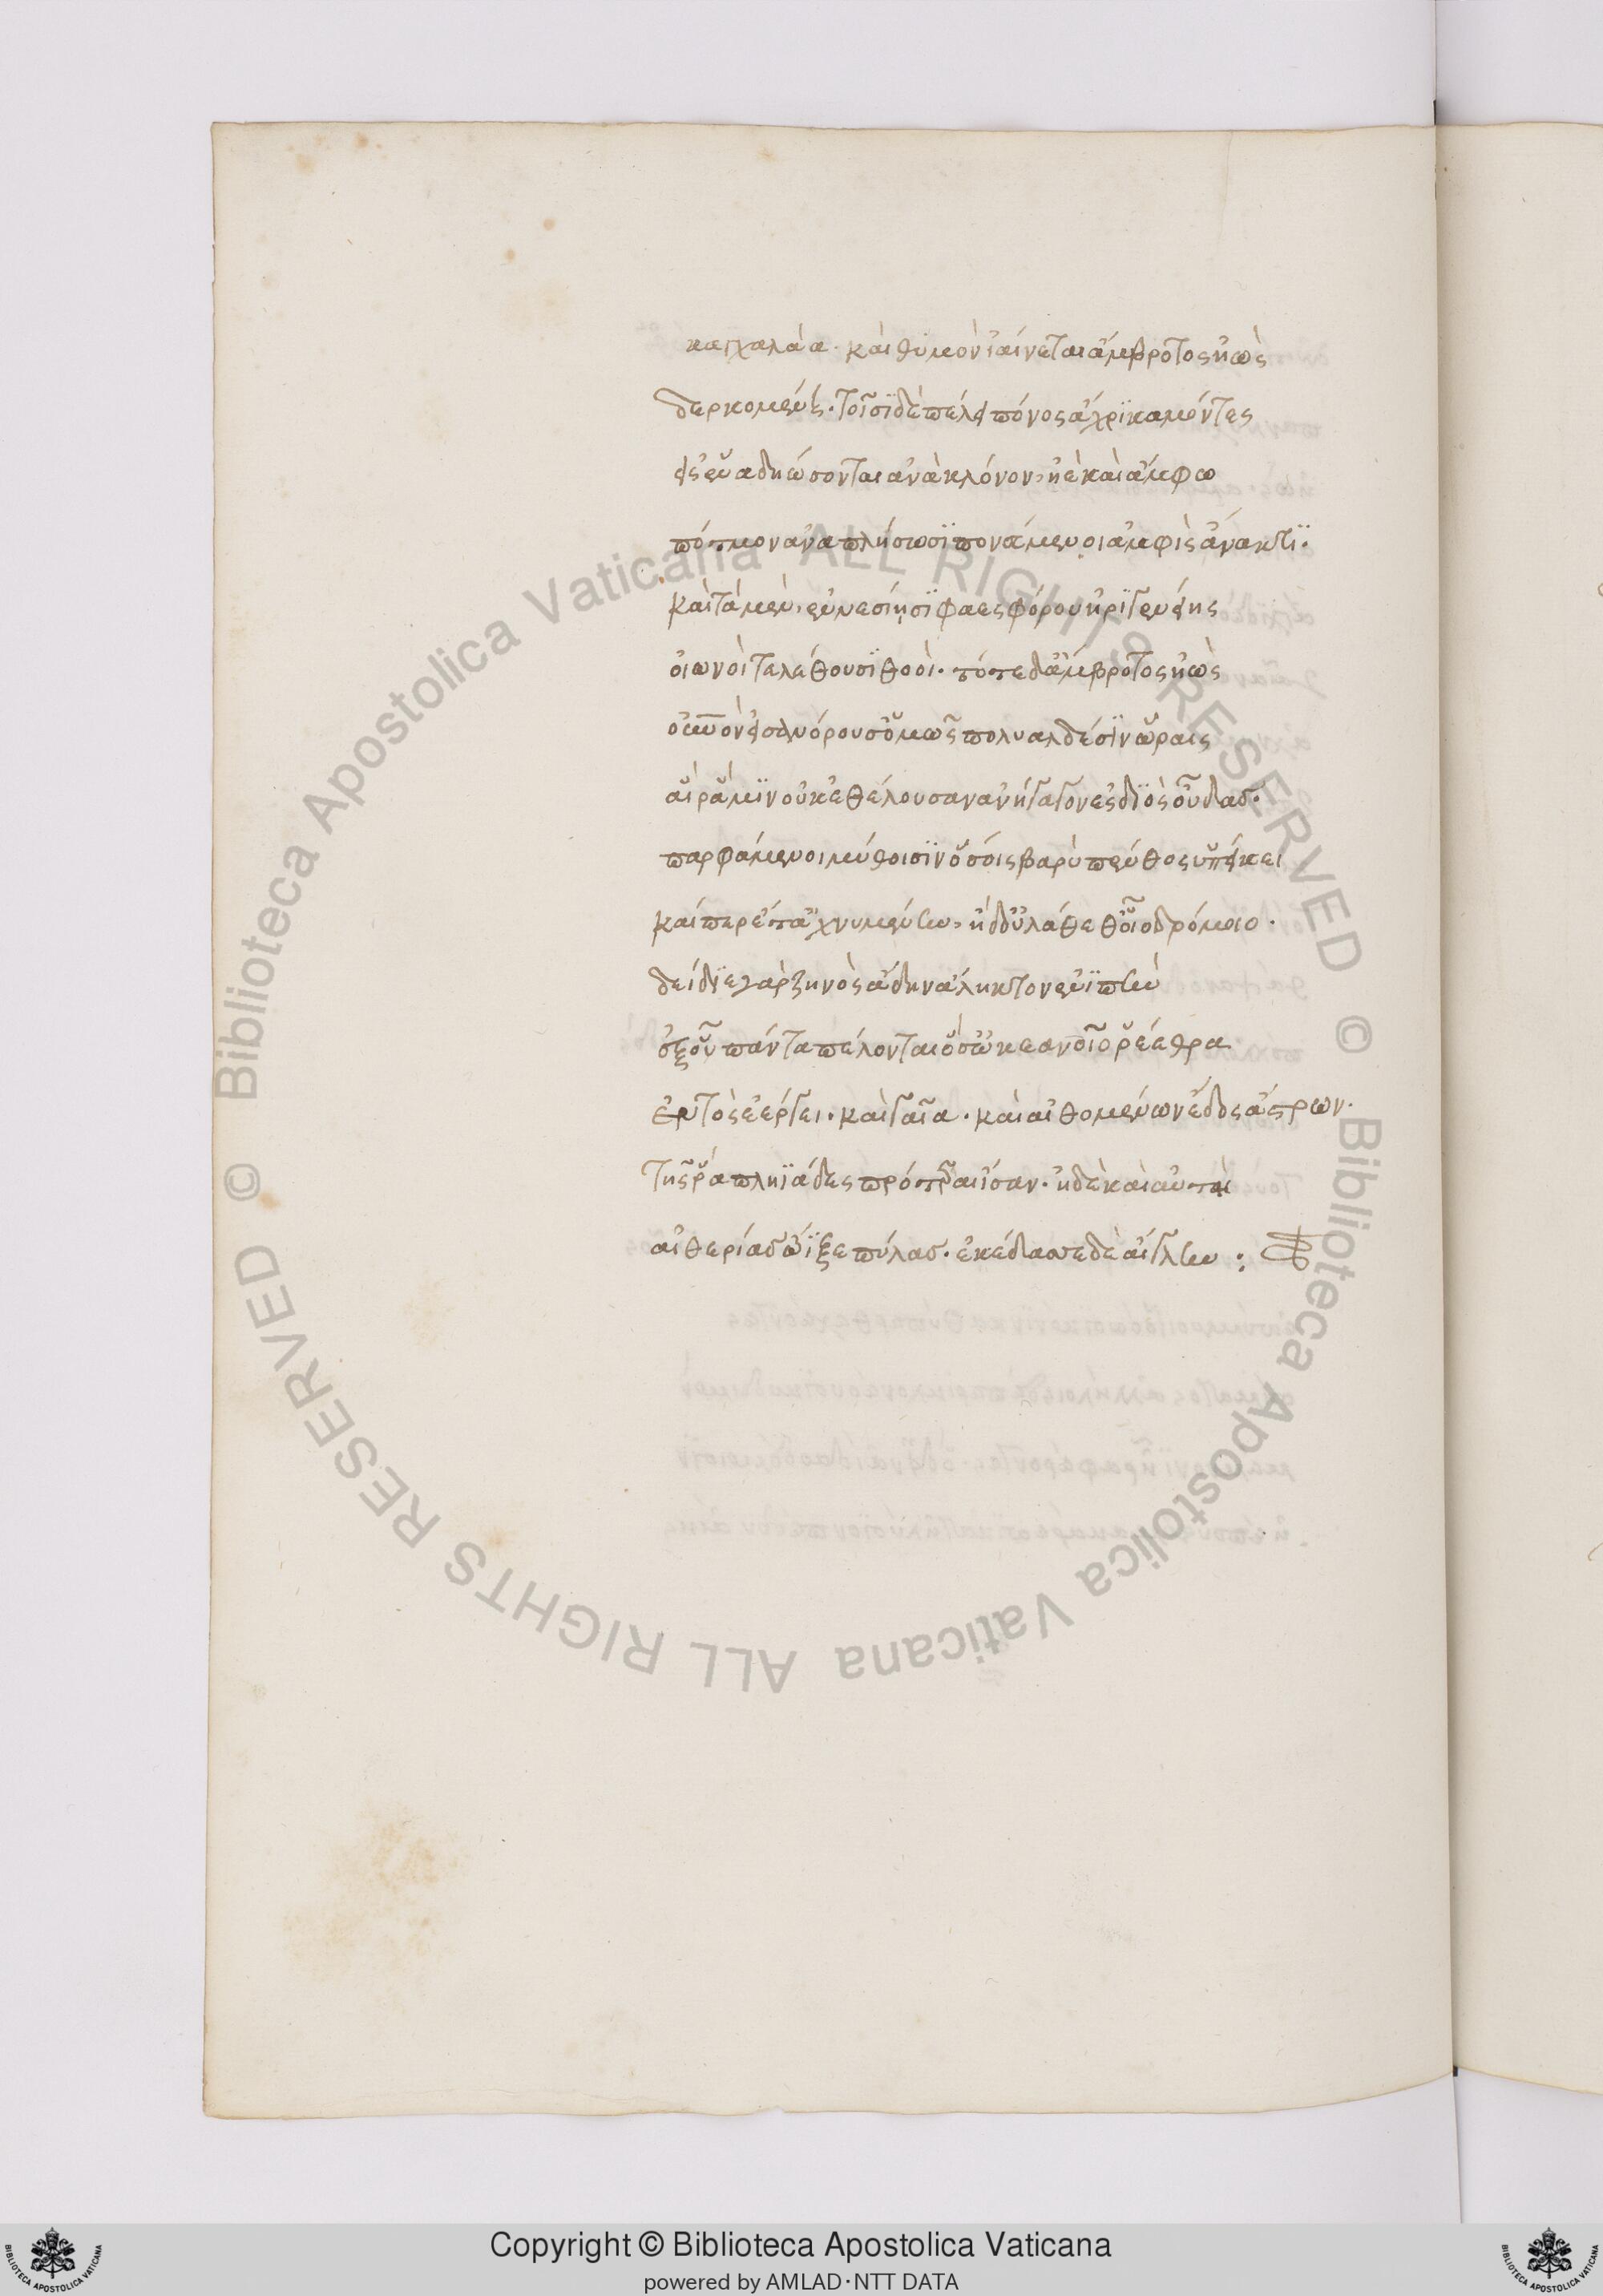 καγχαλάα· καὶ θυμὸν ἰαίνεται ἄμβροτος ἠὼς
δερκομένη· τοῖσϊ δὲ πέλει πόνος ἄχρϊ καμόντες
εἰς εὐνὰ δηώσονται ἀνὰ κλόνον, ἠὲ καὶ ἄμφω
πότμον ἀναπλήσωσϊ πονάμενοι ἀμφὶς ἄνακτϊ·
καὶ τὰ μὲν, ἐννεσίῃσϊ φαεσφόρου ἠρϊγενείης
οἰωνοὶ τελέθουσϊ θοοί· τότε δ' ἄμβροτος ἠὼς
οὐρανὸν εἰσανόρουσ' ὁμῶς πολυαλδέσϊν ὥραις
αἵ ῥά μϊν οὐκ ἐθέλουσαν ἀνήγαγον ἐς δϊὸς οὖδας·
παρφάμενοι μύθοισϊν ὅσοις βαρὺ πένθος ὑπείκει
καίπερ ἔτ' ἀχνυμένην, ἡ δ' οὐ λάθεθ' οἷο δρόμοιο·
δείδϊε γὰρ ζηνὸς ἄδην ἄληκτον ἐνϊπὴν
ἐξ οὗ πάντα πέλονται ὅσ' ὠκεανοῖο ῥέεθρα
ἐντὸς ἐέργει· καὶ γαῖα· καὶ αἰθομένων ἕδος ἄστρων·
τῆς ῥα πληϊάδες πρότεραι ἴσαν· ἠδὲ καὶ αὐτὴ
αἰθερίας ὤϊξε πύλας· ἐκέδασσε δὲ αἴγλην :
Copyright © Biblioteca Apostolica Vaticana
powered by AMLAD·NTT DATA